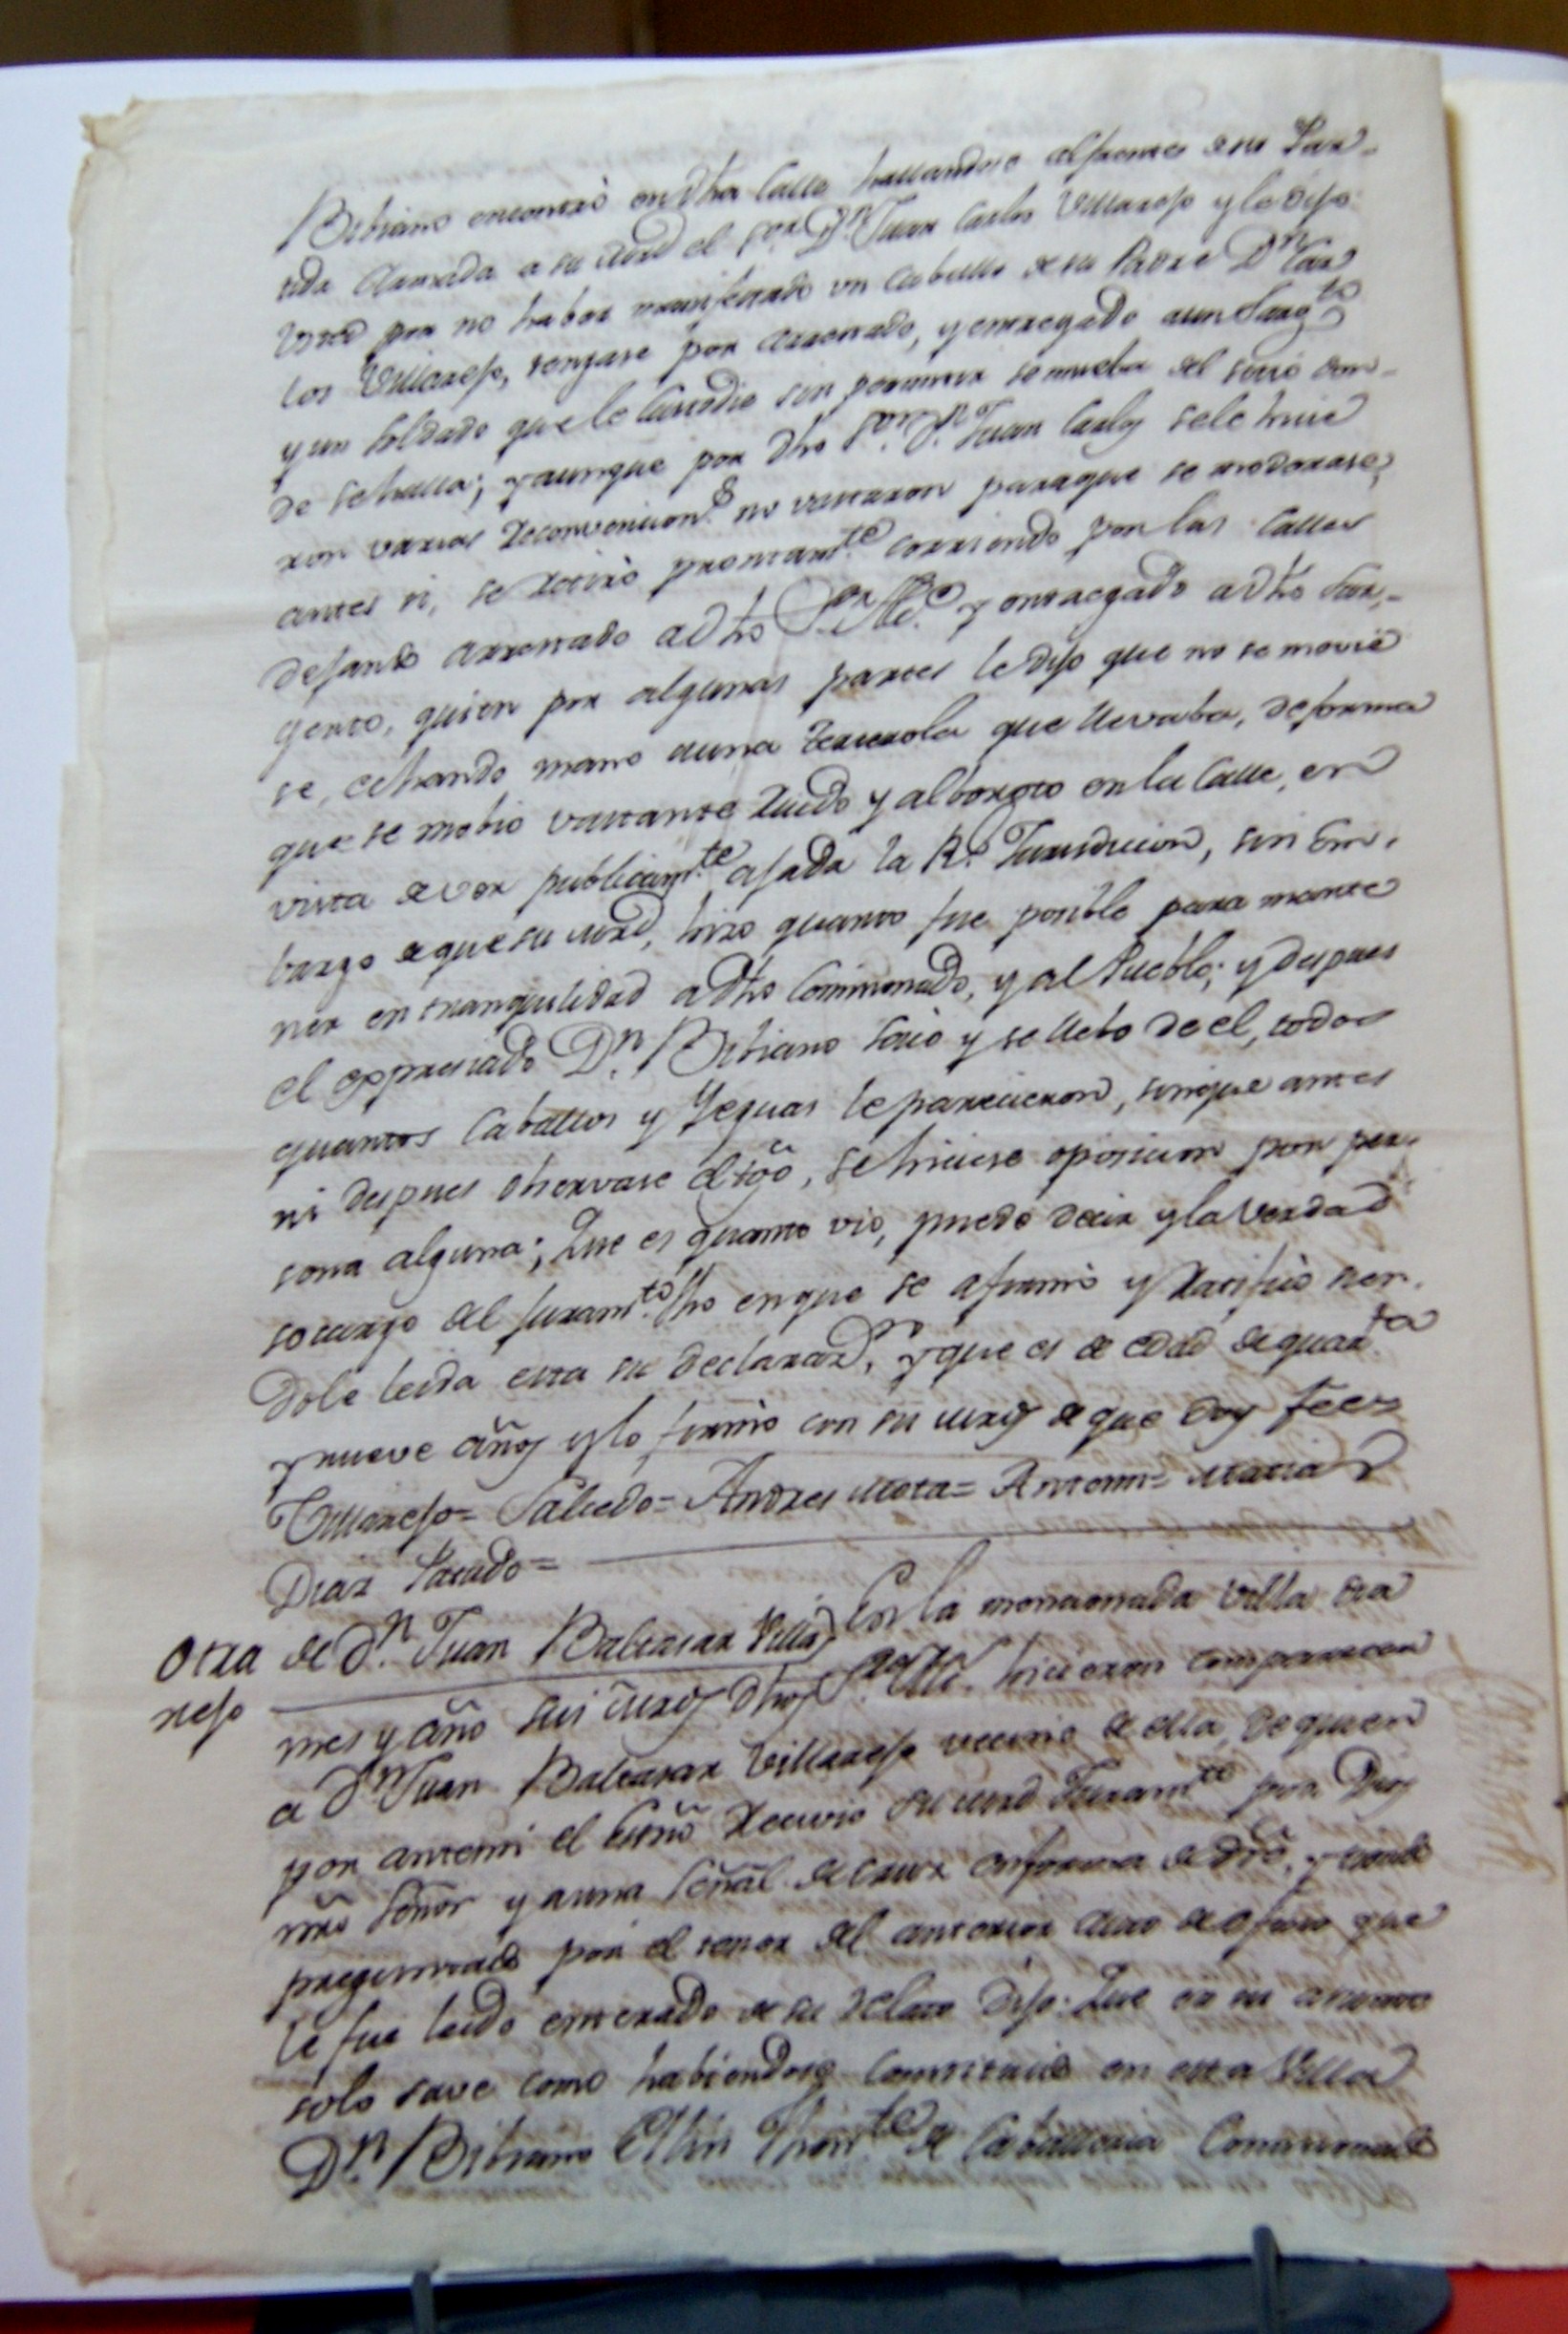 Bibiano encontró en dha Calle hallandose al frente de su Par-
tida Armada a su mrd el Sor. Dn. Juan Carlos Villarejo y le dijo:
Usted por no haber manifestado un Caballo de su Padre Dn. Car
los Villarejo, tengase por arrestado, y entregado a un Sargto
y un Soldado que le Custodie sin permitir se mueba del sitio don-
de se halla; y aunque por dho Sor. Dn. Juan Carlos se le hicie
ron varias reconvencions. no vastaron para que se moderase,
antes si, se retiró prontamte. corriendo por las Calles
dejando arrestado a dho Sor. Alce. y entregado a dho Sar-
gento, quien por algunas partes le dijo que no se movie
se, echando mano a una tercerola que llevaba, de forma
que se mobio vastante ruido y alboroto en la Calle, en
vista de ver publicamte. ajada la Rl. Jurisdicion, sin em-
bargo de que su mrd, hizo quanto fue posible para mante
ner en tranquilidad a dho Comisionado, y al Pueblo; y despues
el expresado Dn. Bibiano Sacó y se llebo de el, todos
quantos Caballos y Yeguas le parecieron, sin que antes
ni despues observase el tgõ, se hiciese oposicion por per-
sona alguna; Que es quanto vio, puede decir y la Verdad
so cargo del juramto. fho en que se afirmó y ratificó sien-
dole leida esta su declaraon. y que es de edad de quarta
y nueve años y lo firmó con su mrd de que doy fee=
Villarejo= Salcedo= Andres Mota= Antoni= Matia
Diaz Parado=
Otra de Dn. Juan Baltasar Villa
rejo
En la mencionada Villa dia
mes y año sus mrds dhos Sres. Alces. hicieron comparecer
a Dn Juan Baltasar Villarejo vecino de ella, de quien
por ante mi el Essno recivio su mrd Juramto por Dios
nro Señor y a una Señal de cruz en forma de dro. y siendo
preguntado por el tenor del anterior auto de oficio que
le fue leido enterado de su relato Dijo: Que en su asunto
solo save como habiendose Constituido en esta Villa
Dn. Bibiano Thente de Caballeria Comisionado